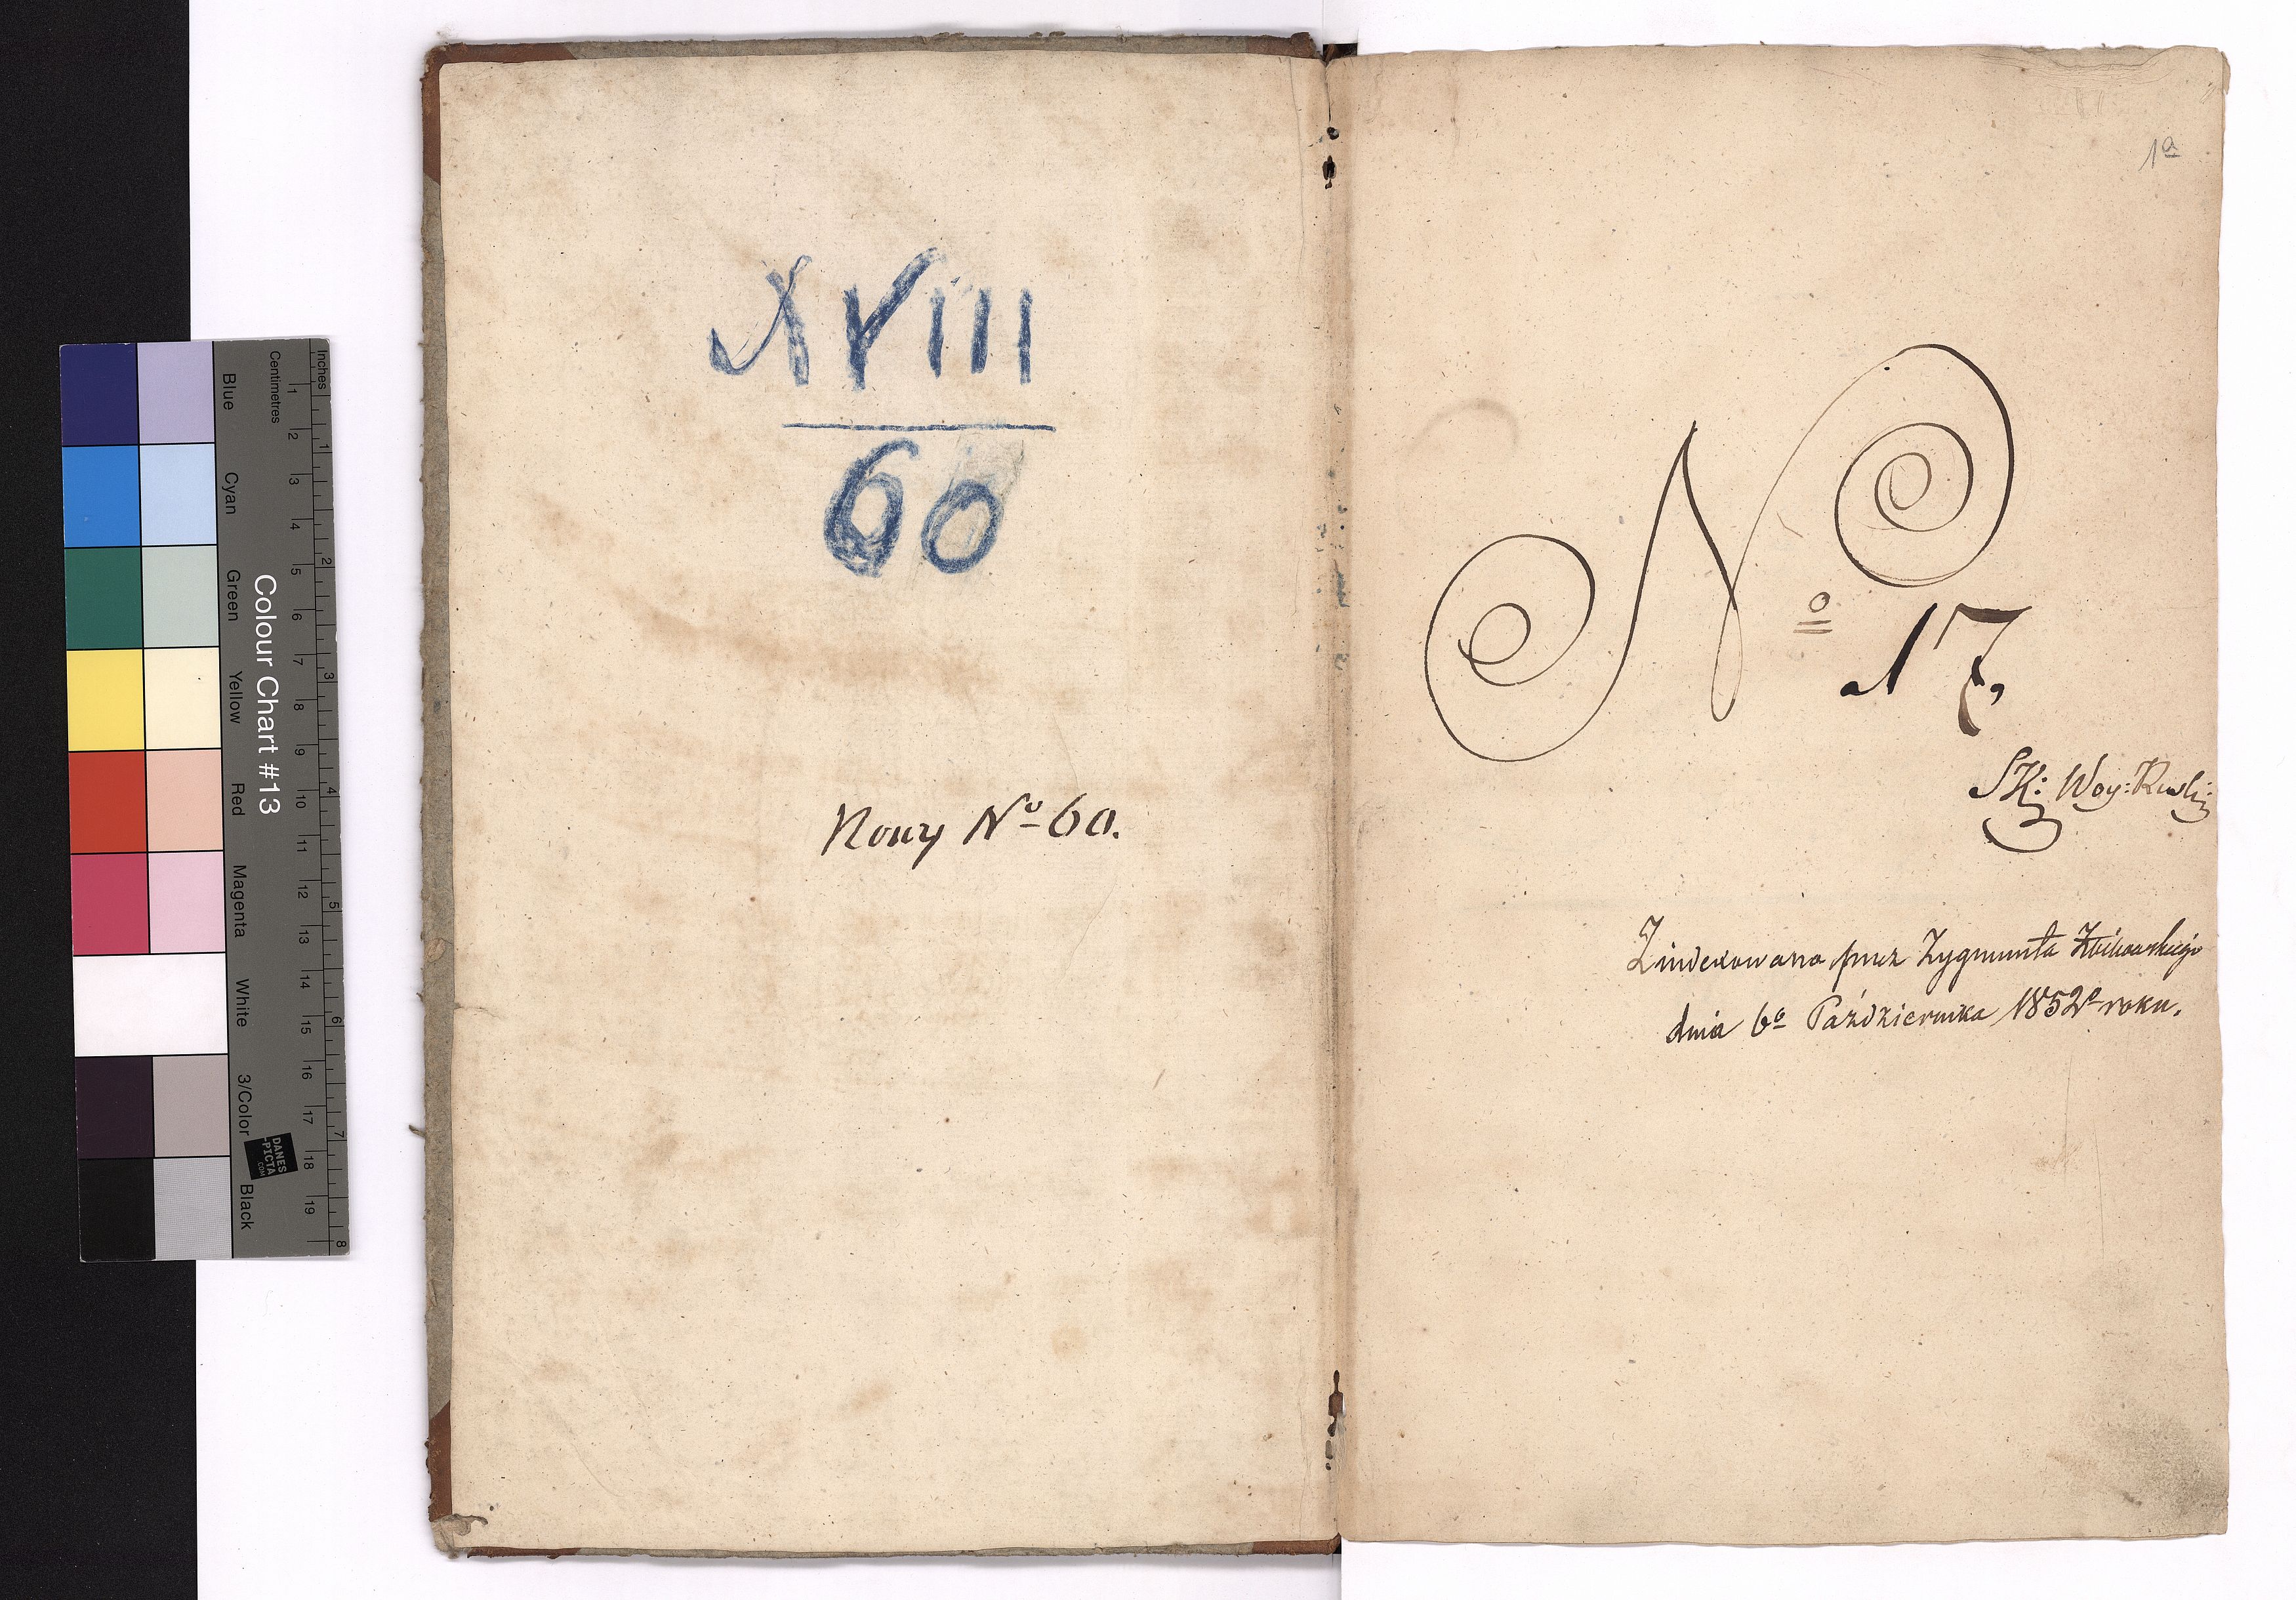 Inches
Centimetres
1 2 3 4 5 6 7 8
1 2 3 4 5 6 7 8 9 10 11 12 13 14 15 16 17 18 19
Colour Chart #13
Blue
Cyan
Green
Yellow
Red
Magenta
White
3/Color
Black
DANES
-PICTA
.COM
XVIII
60
Nowy Nº 60.
1a
Nº 17.
SK: Woy:
Zindexowano przez Zygmunta
dnia 6º Października 1852º roku.